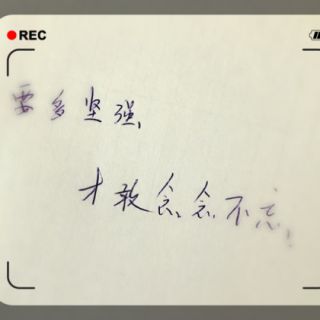 REC
要多坚强,
才敢念念不忘.